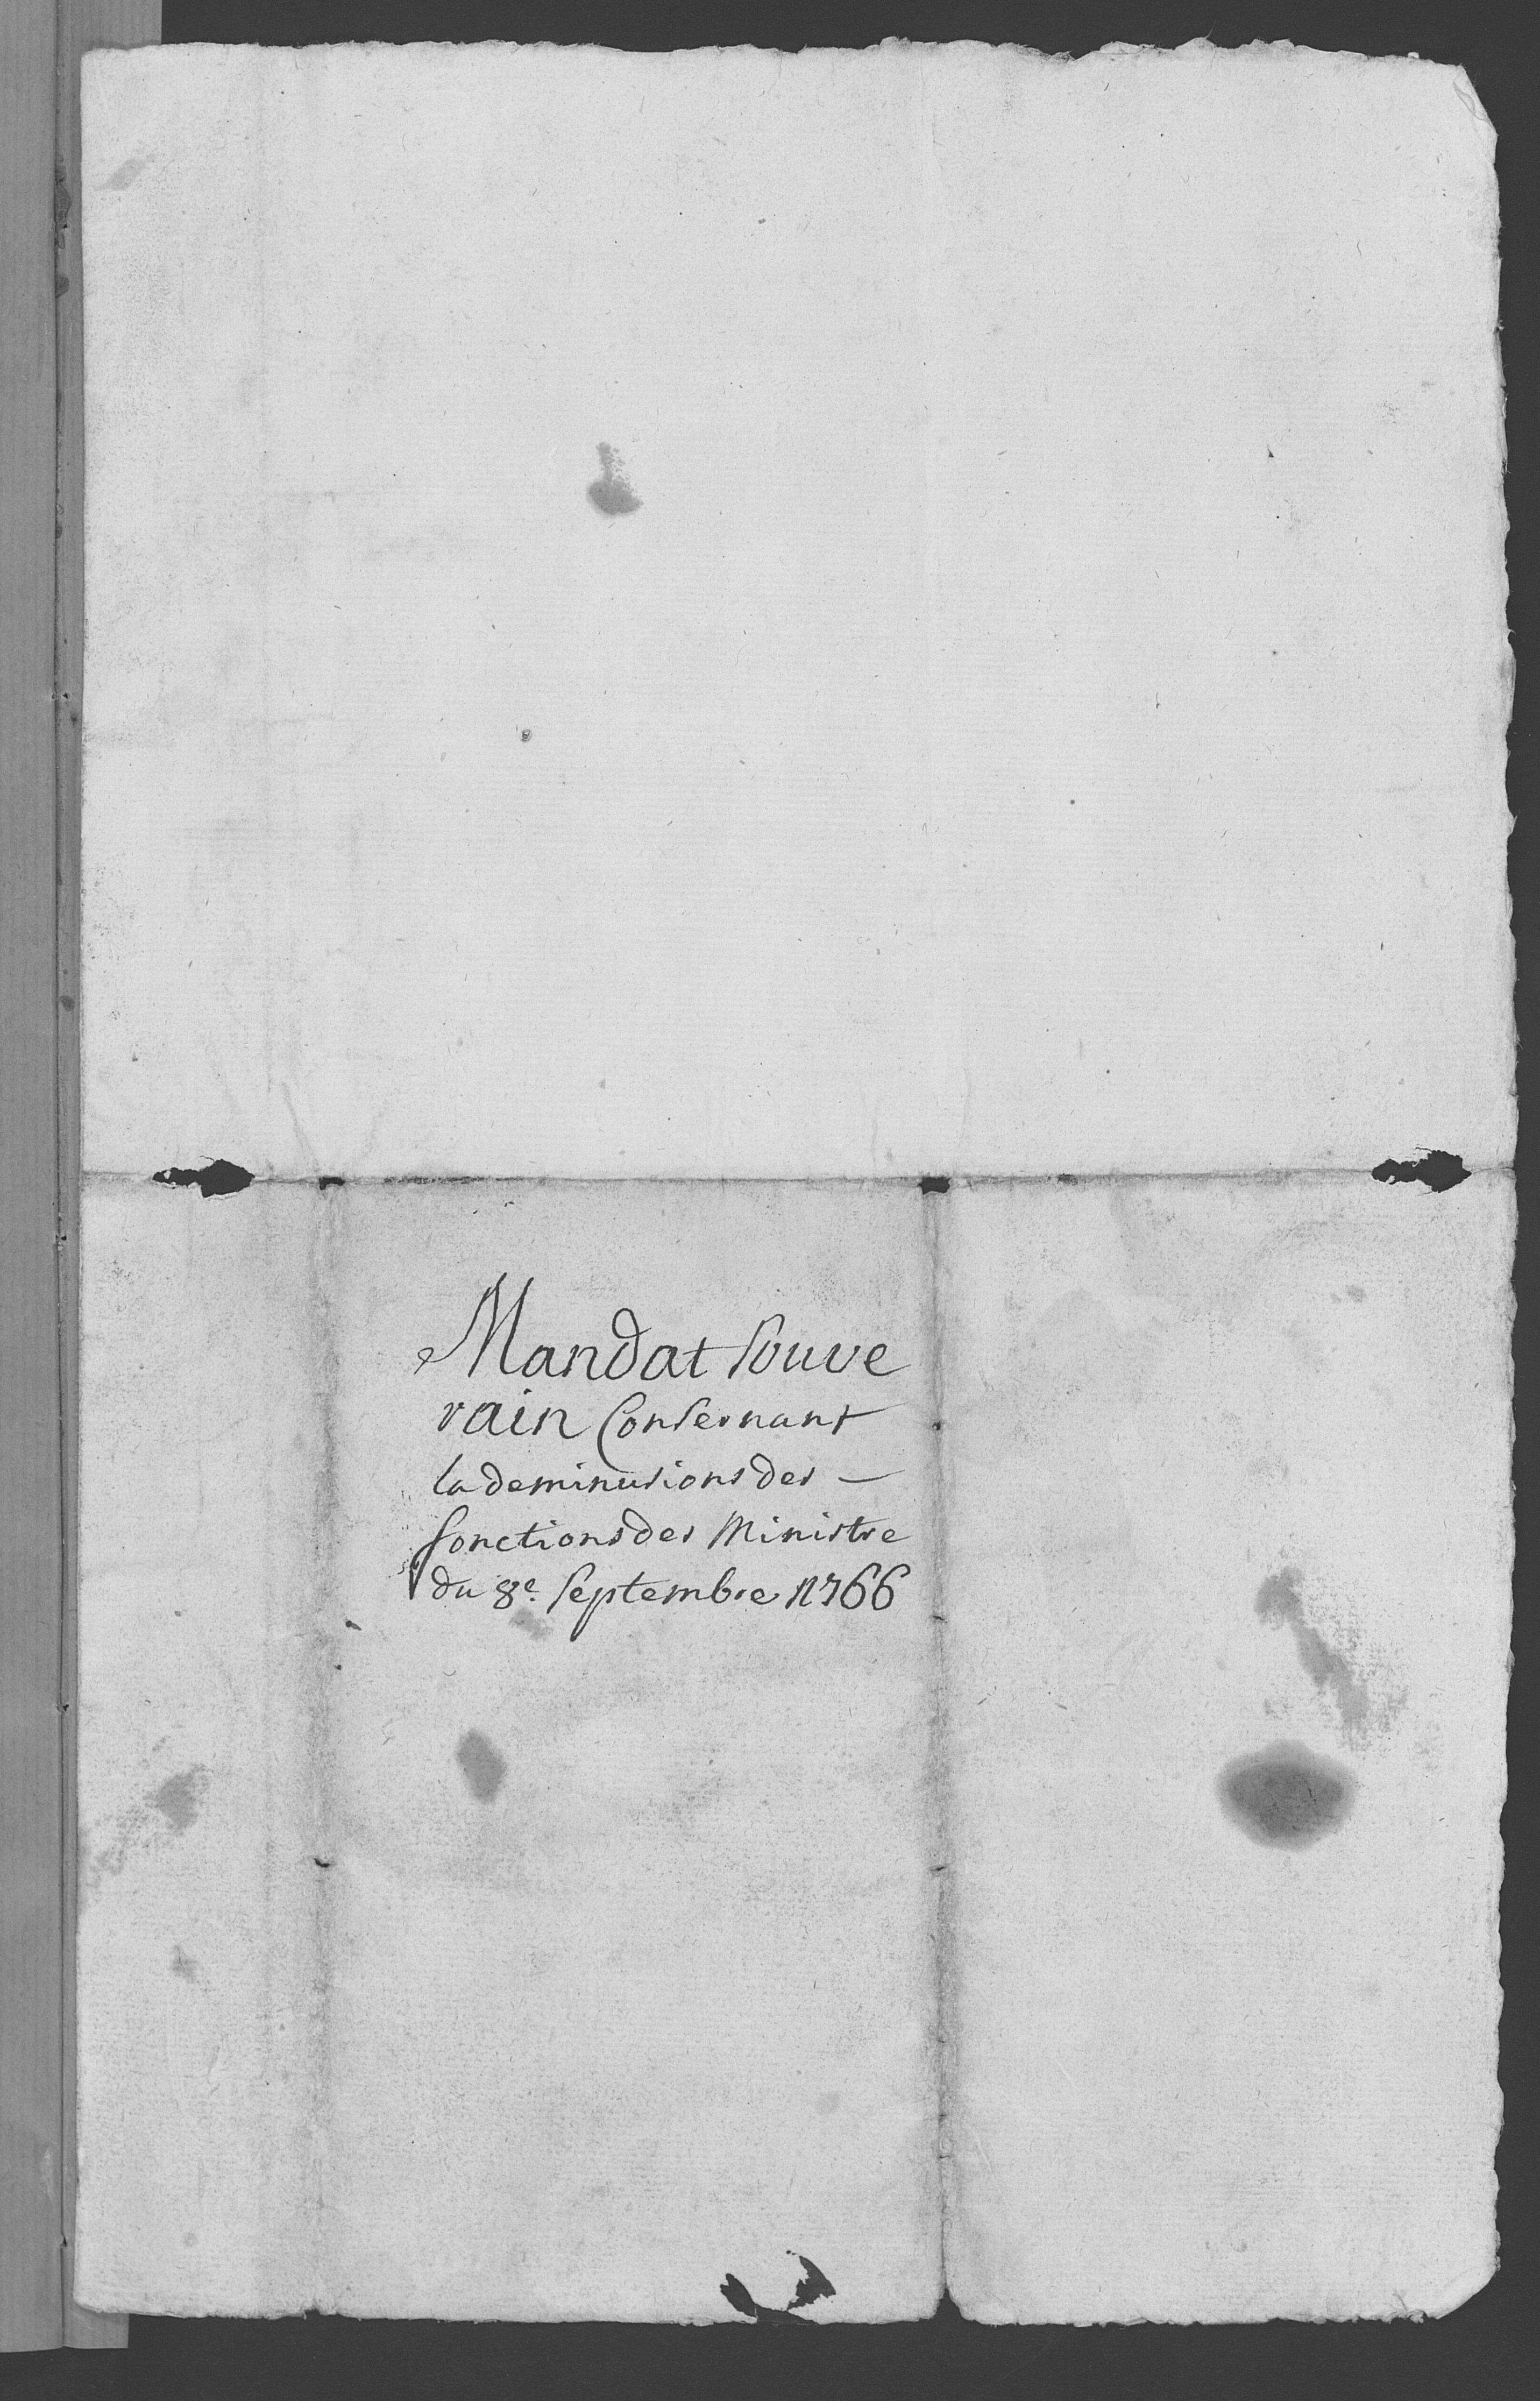 Mandat Souve
rain Consernant
la deminusions des —
fonctions des Ministre
du 8e. Septembre 1766